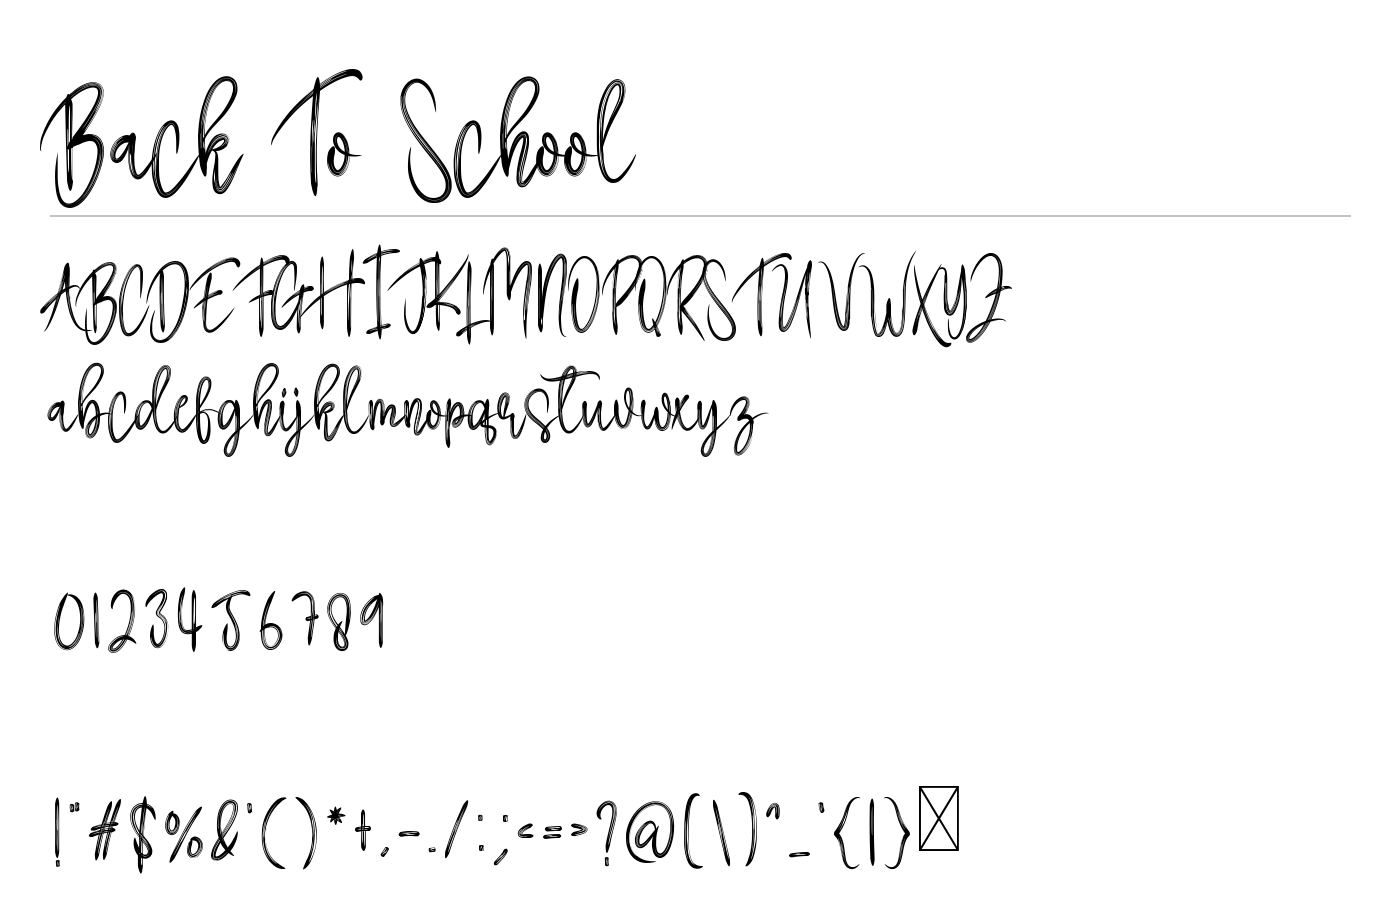 Back To School
ABCDEFGHIJKLMNOPQRSTUVWXYZ
abcdefghijklmnopqrstuvwxyz
0123456789
!"#$%&'()*+,-./:;<=>?@[\]^_`{|}